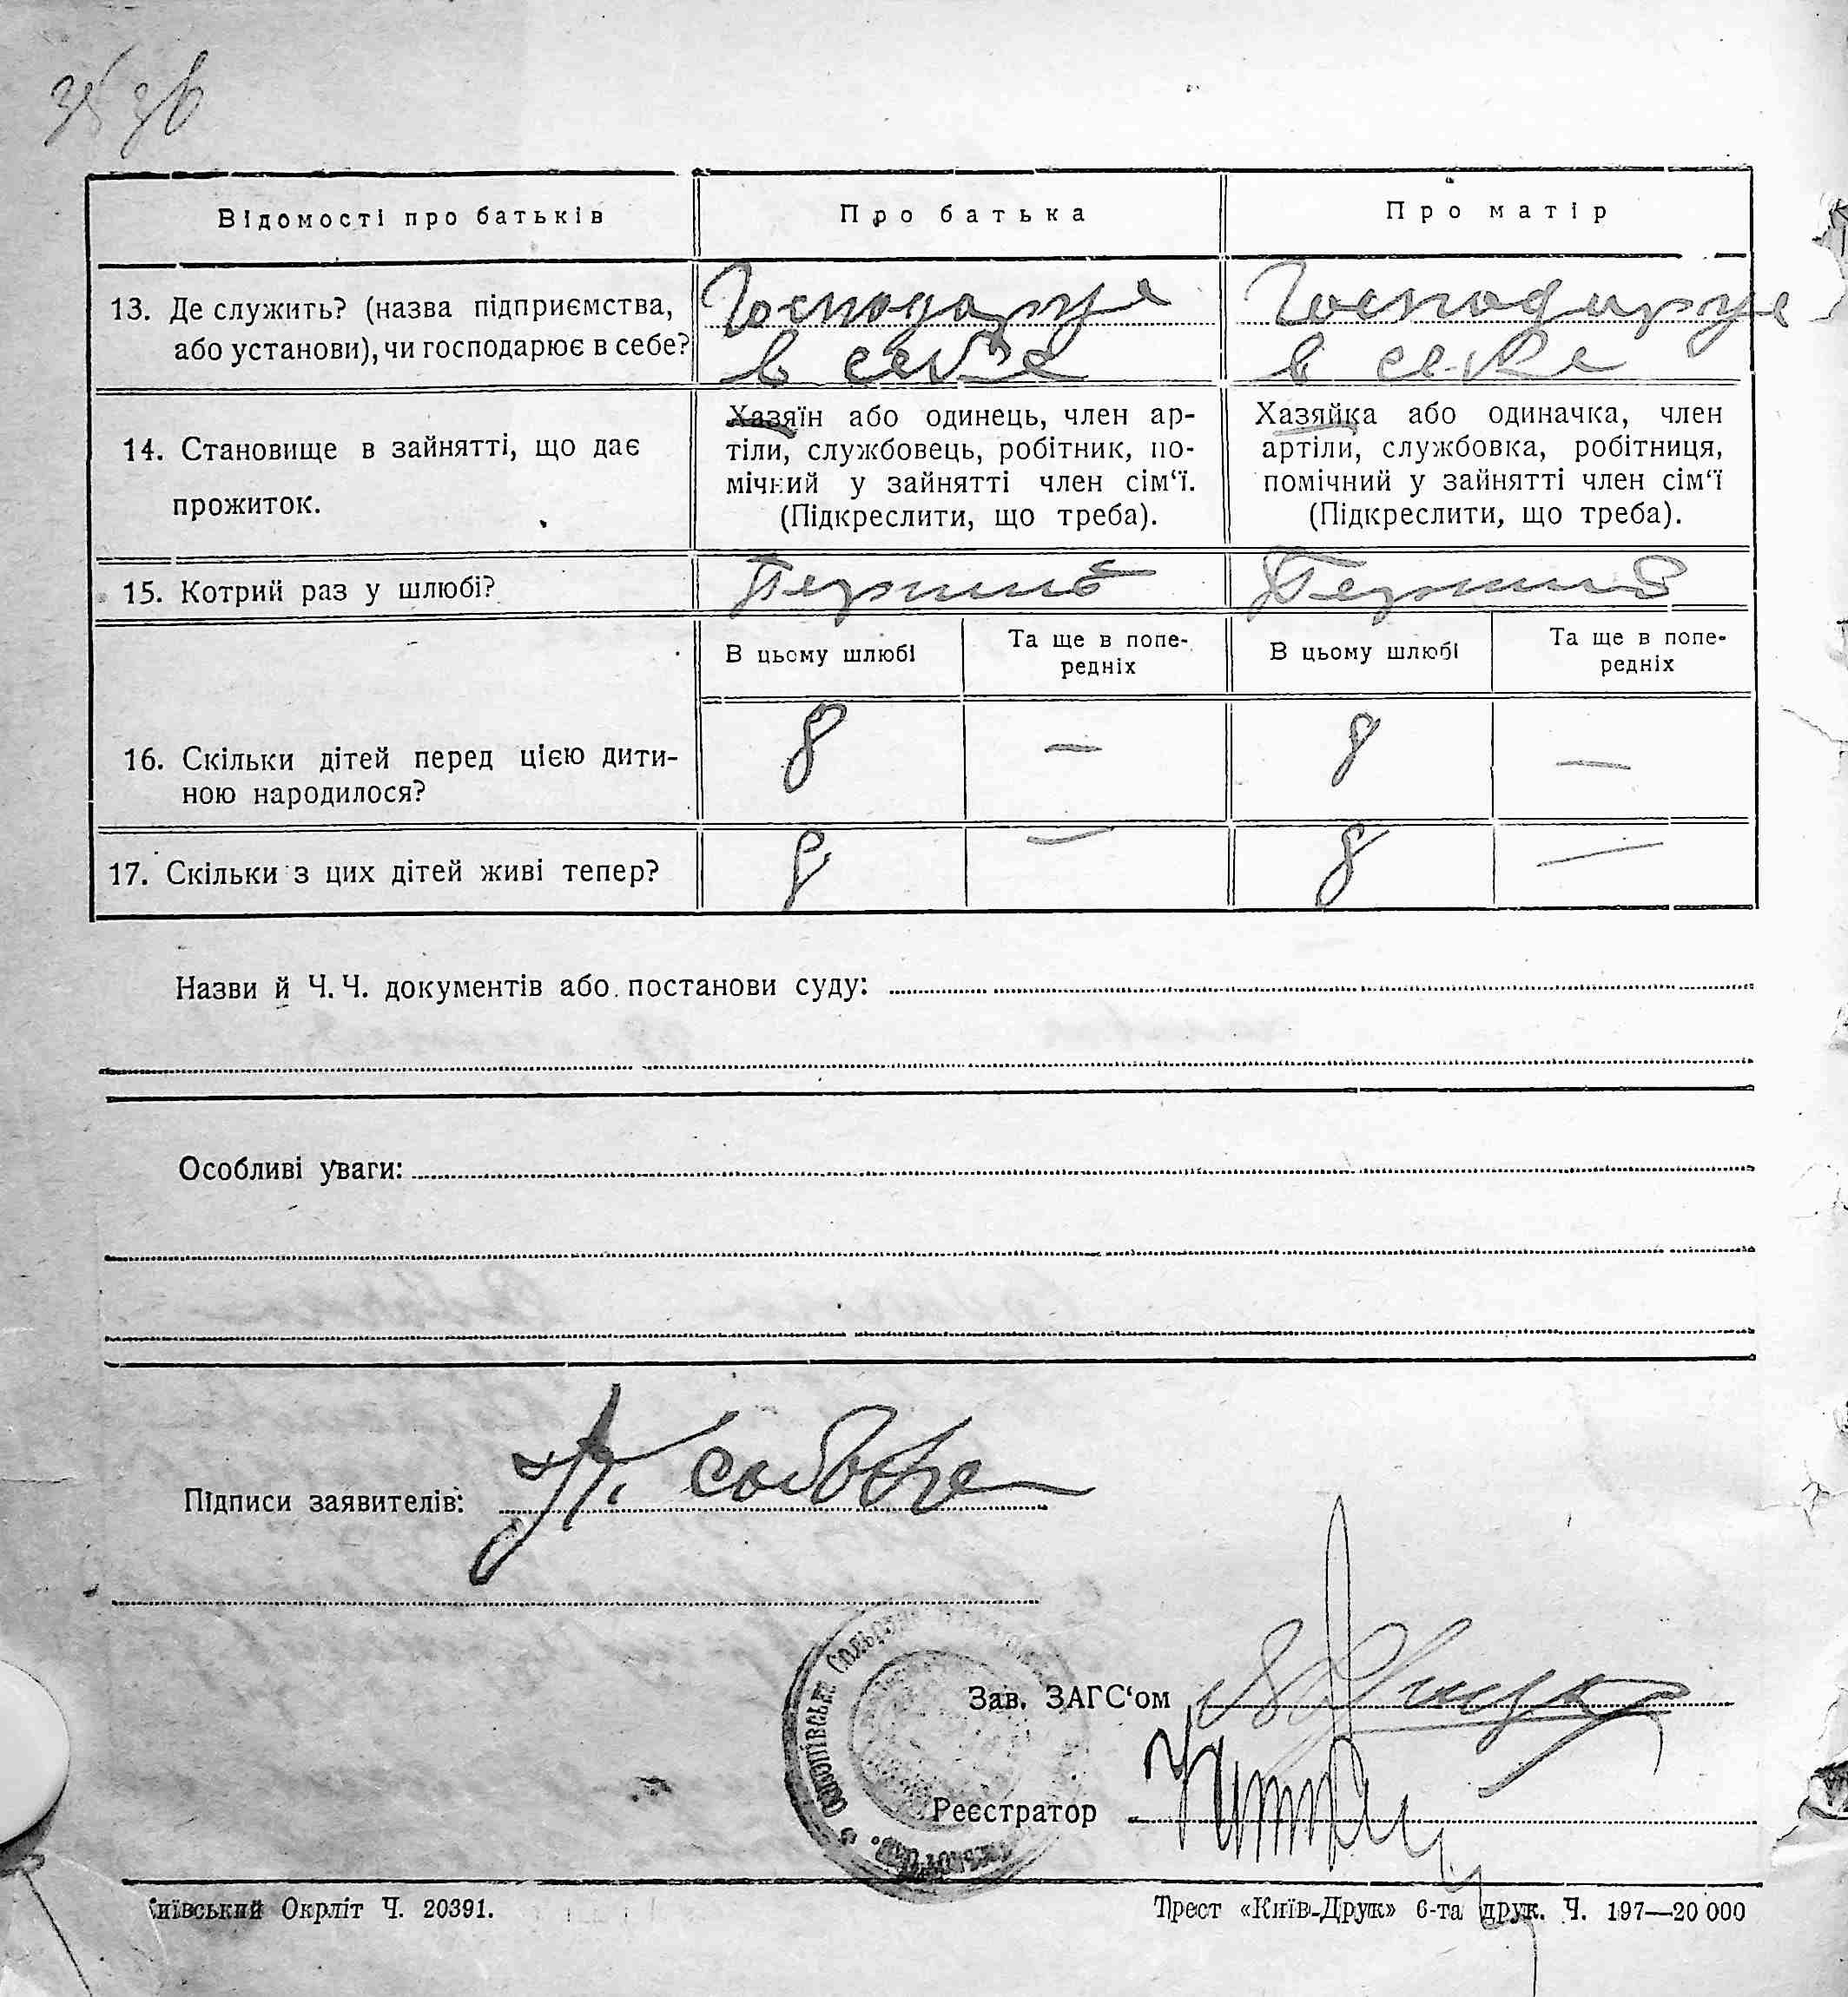 Відомості про батьків
Про батька
Про матір
13. Де служить? (назва підприємства,
або установи), чи господарює в себе?
Господарує
в себе
Господарує
в себе
14. Становище в зайнятті, що дає
прожиток.
Хазяїн або одинець, член ар-
тіли, службовець, робітник, по-
мічний у зайнятті член сім‘ї.
(Підкреслити, що треба).
Хазяйка або одиначка, член
артіли, службовка, робітниця,
помічний у зайнятті член сім‘ї
(Підкреслити, що треба).
15. Котрий раз у шлюбі?
Перший
Перший
В цьому шлюбі
Та ще в попе-
редніх
В цьому шлюбі
Та ще в попе-
редніх
16. Скільки дітей перед цією дити-
ною народилося?
8
—
8
—
17. Скільки з цих дітей живі тепер?
8
—
8
—
Назви й Ч. Ч. документів або постанови суду:
Особливі уваги:
Підписи заявителів:
Зав. ЗАГС‘ом
Реєстратор
Київський Окрліт Ч. 20391.
Трест «Київ-Друк» 6-та друк. Ч. 197—20 000